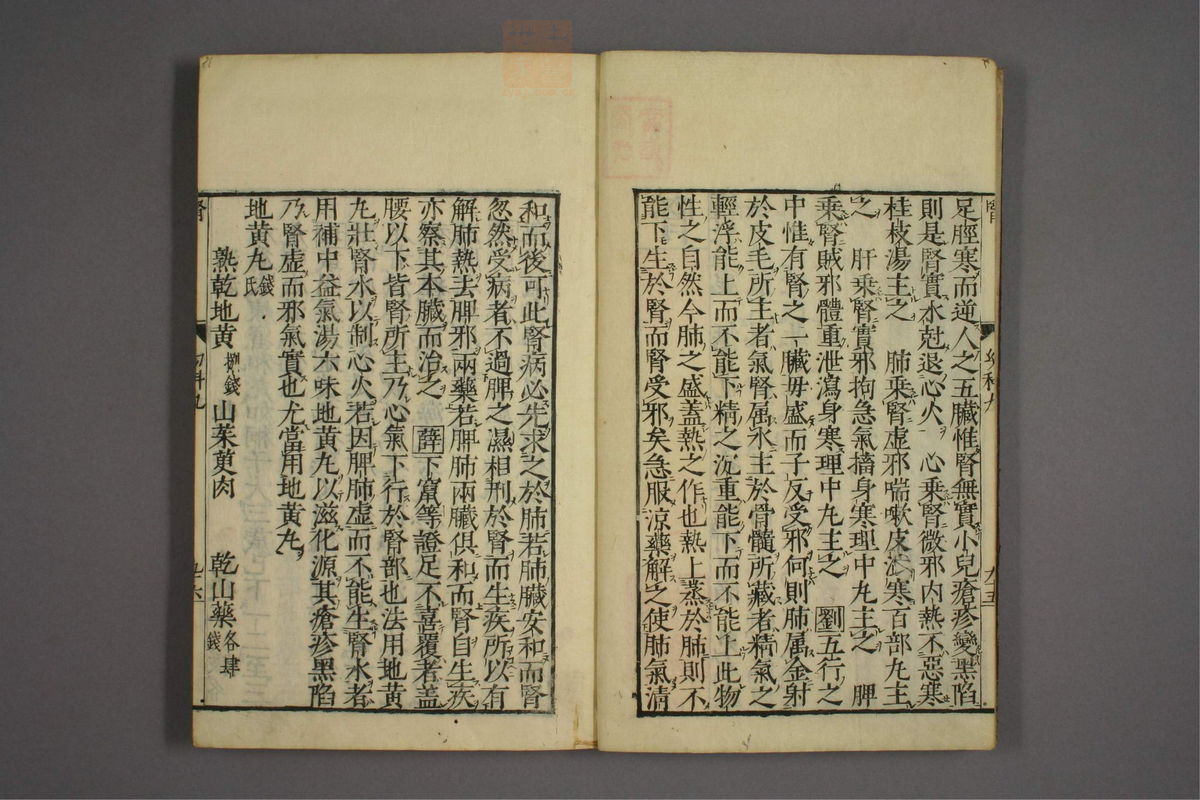 足脛寒而逆人之五臟惟腎無實小兒瘡疹變黑陷
則是腎實水尅退心火　心乘腎微邪内熱不惡寒
桂枝湯主之　肺乘腎虛邪喘嗽皮濇寒百部丸主
之　肝乘腎實邪拘急氣搐身寒理中丸主之　脾
乘腎賊邪體重泄瀉身寒理中丸主之　劉五行之
中惟有腎之一臟毋盛而子反受邪何則肺属金射
於皮毛所主者氣腎属水主於骨髓所藏者精氣之
輕浮能上而不能下精之沉重能下而不能上此物
性之自然今肺之盛蓋熱之作也熱上蒸於肺則不
能下生於腎而腎受邪矣急服涼藥解之使肺氣淸
和而後可此腎病必先求之於肺若肺臟安和而腎
忽然受病者不過脾之濕相刑於腎而生疾所以有
解肺熱去脾邪兩藥若脾肺兩臟俱和而腎自生疾
亦察其本臟而治之　薛下竄等證足不喜覆者蓋
腰以下皆腎所主乃心氣下行於腎部也法用地黃
丸壯腎水以制心火若因脾肺虛而不能生腎水者
用補中益氣湯六味地黃丸以滋化源其瘡疹黑陷
乃腎虛而邪氣實也尤當用地黃丸
地黃丸錢氏
熟乾地黃捌錢　山茱萸肉　乾山藥各肆錢
腎　幼科九　九六